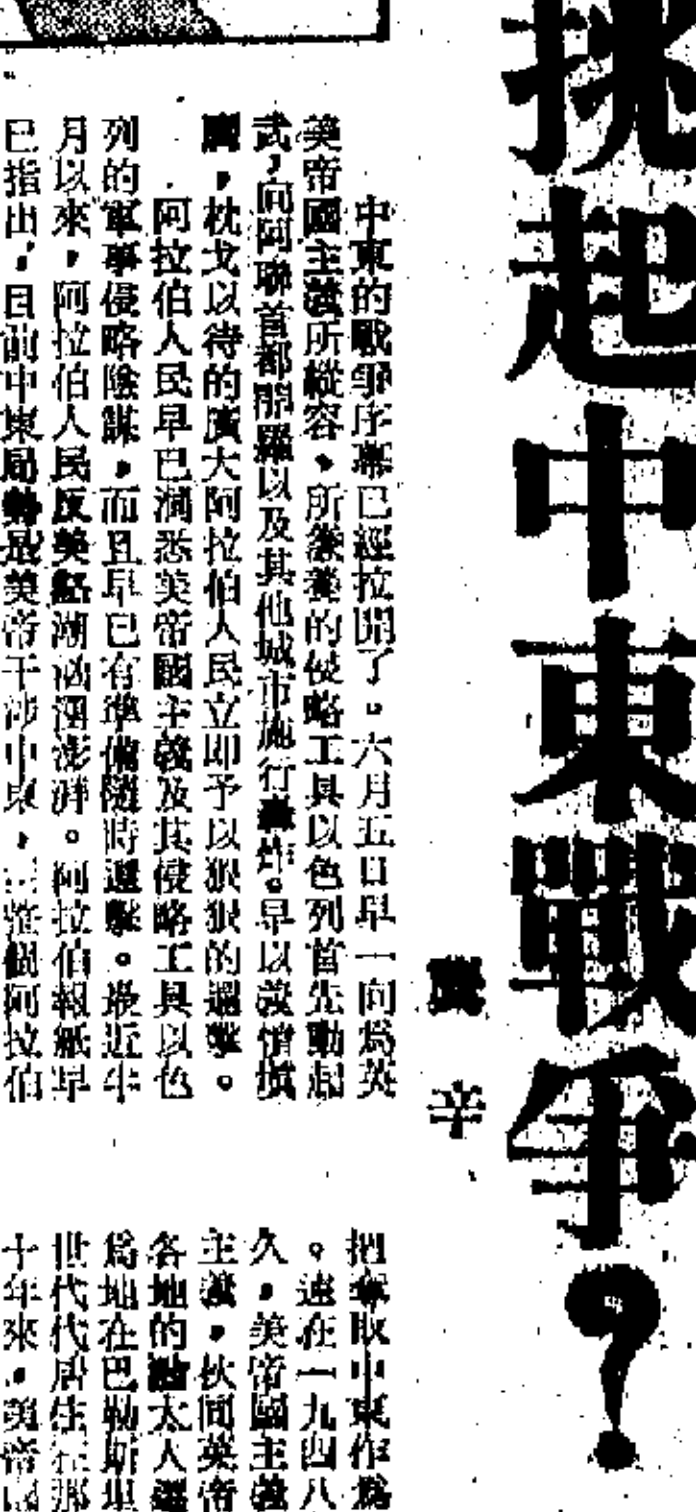 挑起中東戰爭?
辛
中東的戰爭序幕已經拉開了。六月五日早一向爲英
美帝國主義所縱容,所豢養的侵略工具以色列首先動起
武,向阿聯首都開羅以及其他城市施行轟炸。早以義憤填
膺,枕戈以待的廣大阿拉伯人民立即予以狠狠的還擊。
阿拉伯人民早已洞悉美帝國主義及其侵略工具以色
列的軍事侵略陰謀,而且早已有準備隨時還擊。最近半
月以來,阿拉伯人民反美怒潮汹湧澎湃。阿拉伯報紙早
已指出,目前中東局勢是美帝干涉中東,整個阿拉伯
把奪取中東作爲
。遠在一九四八
久,美帝國主義
主義,伙同英帝
各地的猶太人
爲地在巴勒斯坦
世代代居住在那
十年來,美帝國